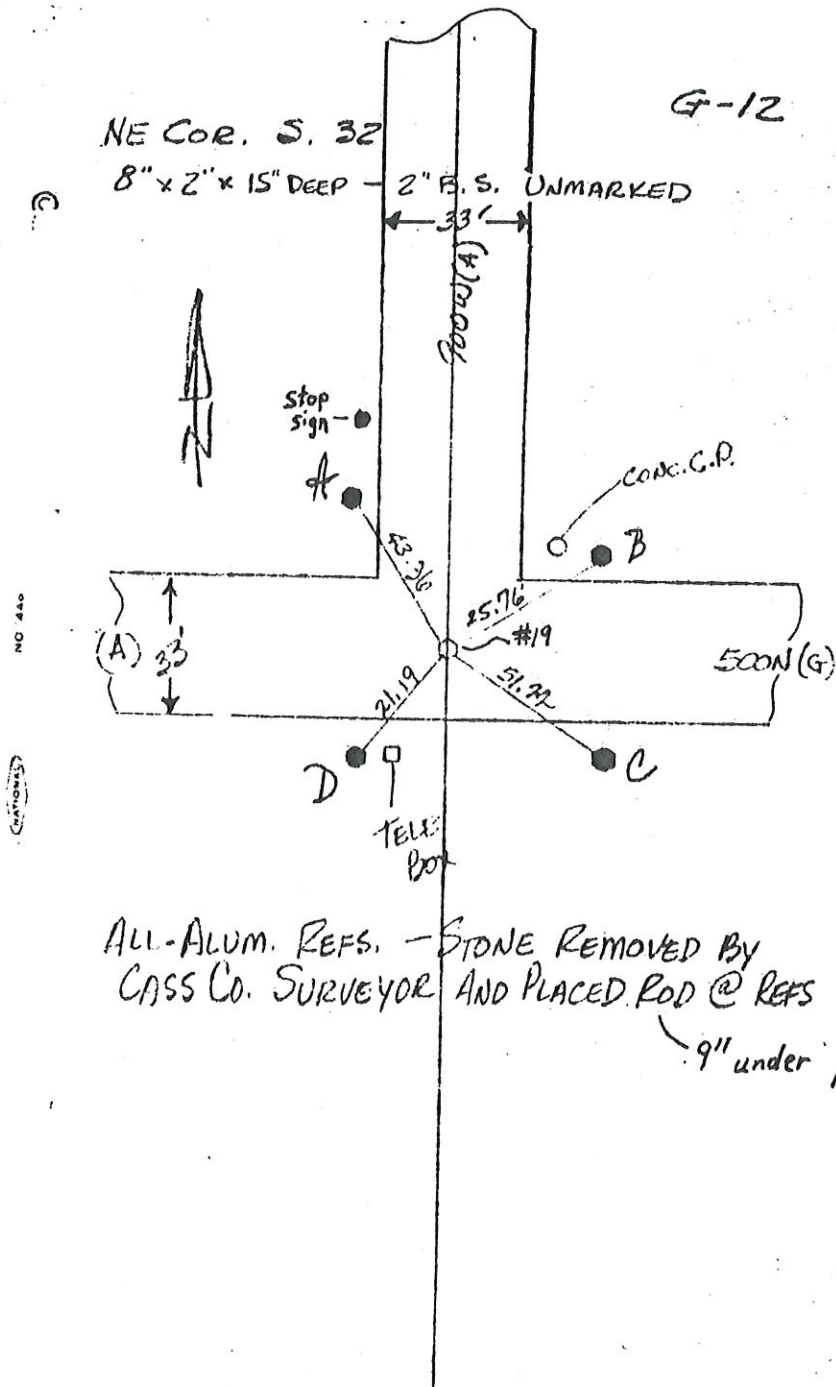 G-12
NE COR. S. 32
8" x 2" x 15" DEEP - 2" B.S. UNMARKED
33'
(A)
stop
sign
A
CONC. C.P.
B
43.36
25.76
#19
(A)
33'
500N (G)
21.19
D
C
TELE
BOX
ALL-ALUM. REFS. - STONE REMOVED BY
CASS CO. SURVEYOR AND PLACED ROD @ REFS
9" under
N
NO 440
NATIONAL
©